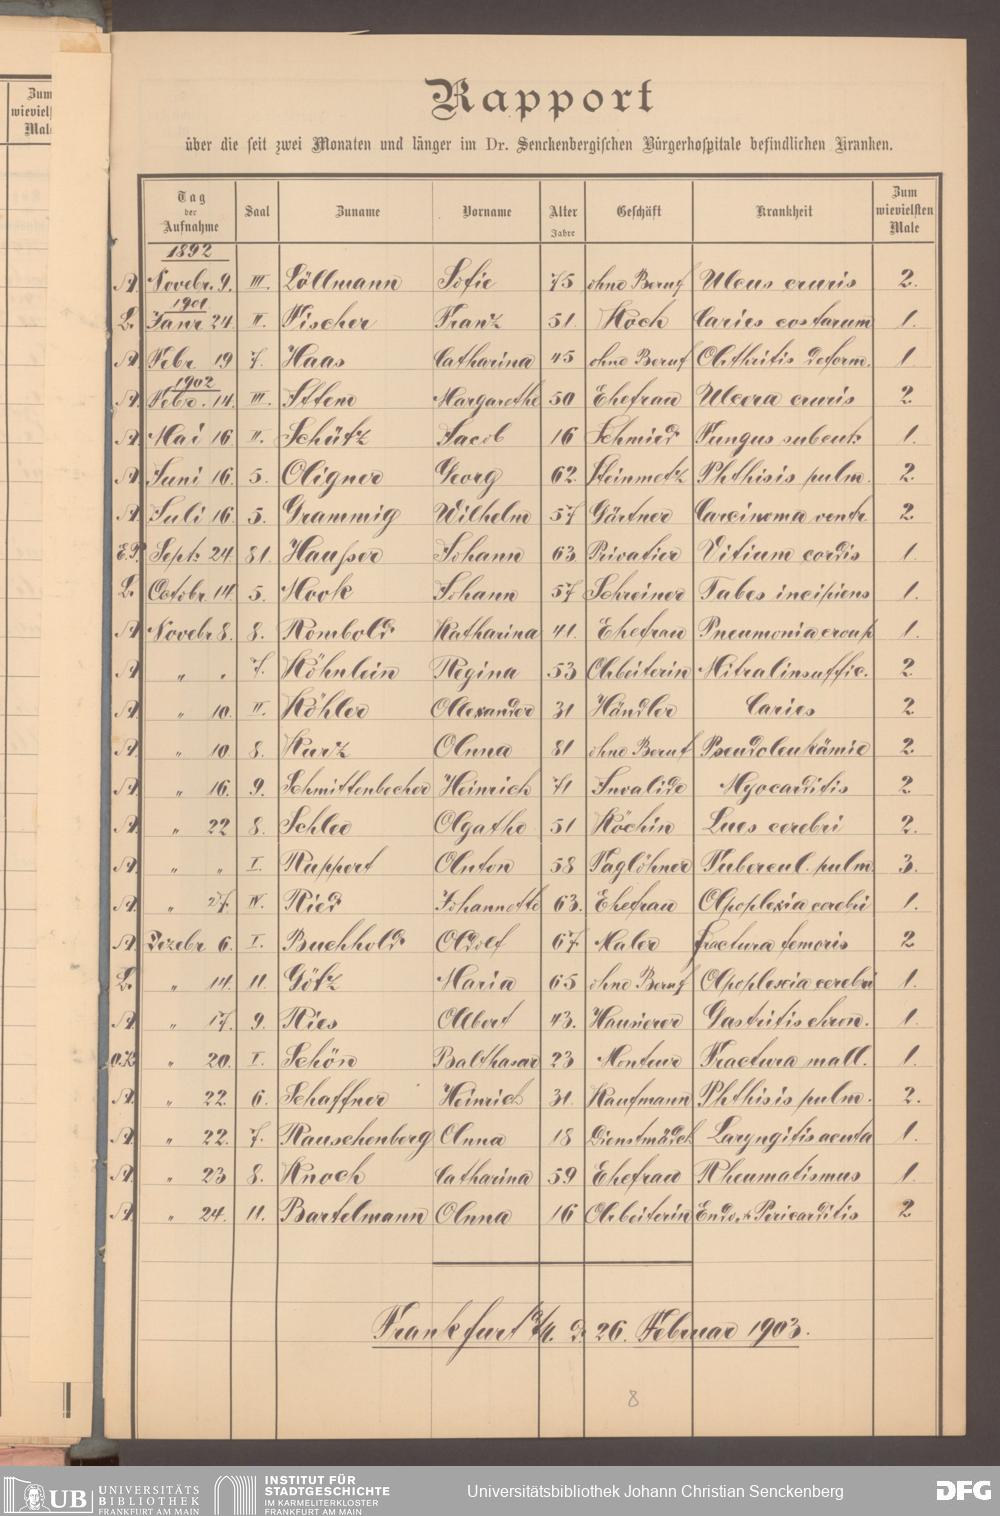 Zum
wieviel
Male
Rapport
über die seit zwei Monaten und länger im Dr. Senckenbergischen Bürgerhospitale befindlichen Kranken.
Tag der Aufnahme Saal Zuname Vorname Alter Jahre Geschäft Krankheit Zum wievielsten Male
1892
A. Novebr. 9. III. Löllmann Sofie 75 ohne Beruf Ulcus cruris 2.
1901
L. Janr. 24. II. Fischer Franz 51. Koch Caries costarum 1.
A. Febr. 19 7. Haas Catharina 45 ohne Beruf Arthritis deform. 1
1902
A. Febr. 14. III. Ittem Margarethe 50 Ehefrau Ulcera cruris 2
A. Mai 16 II. Schütz Jacob 16 Schmied Fungus subcut. 1.
A. Juni 16. 5. Aigner Georg 62. Steinmetz Phthisis pulm. 2
A. Juli 16. 5. Grammig Wilhelm 57 Gärtner Carcinoma ventr. 2
E.P. Sept. 24. 81. Hausser Johann 63 Privatier Vitium cordis 1.
L. Octobr. 14. 5. Mook Johann 57 Schreiner Tabes incipiens 1.
A. Novebr. 8. 8. Rombold Katharina 41. Ehefrau Pneumonia croup. 1.
A. " " 7. Köhnlein Regina 53 Arbeiterin Mitralinsuffic. 2.
A. " 10. II. Köhler Alexander 31 Händler Caries 2
A. " 10 8. Kurz Anna 81 ohne Beruf Pseudoleukämie 2.
A. " 16. 9. Schmittenbecher Heinrich 71 Invalide Myocarditis 2
A. " 22 8. Schlee Agathe 51 Köchin Lues cerebri 2.
A. " " I. Ruppert Anton 58 Taglöhner Tubercul. pulm. 3.
A. " 27. IV. Ried Johannette 63. Ehefrau Apoplexia cerebri 1.
A. Dezebr. 6. I. Buchhold Adolf 67. Maler Fractura femoris 2
L. " 14. 11. Götz Maria 65 ohne Beruf Apoplexia cerebri 1.
A. " 17. 9. Ries Albert 43. Hausierer Gastritis chron. 1.
O.K. " 20. I. Schön Balthasar 23 Monteur Fractura mall. 1.
A. " 22. 6. Schaffner Heinrich 31. Kaufmann Phthisis pulm. 2.
A. " 22. 7. Rauschenberg Anna 18 Dienstmädch. Laryngitis acuta 1.
A. " 23 8. Knoch Catharina 59 Ehefrau Rheumatismus 1.
A. " 24. 11. Bartelmann Anna 16 Arbeiterin Endo. & Pericarditis 2
Frankfurt a/M. d. 26. Februar 1903.
8
UB UNIVERSITÄTS BIBLIOTHEK FRANKFURT AM MAIN
INSTITUT FÜR STADTGESCHICHTE IM KARMELITERKLOSTER FRANKFURT AM MAIN
Universitätsbibliothek Johann Christian Senckenberg
DFG